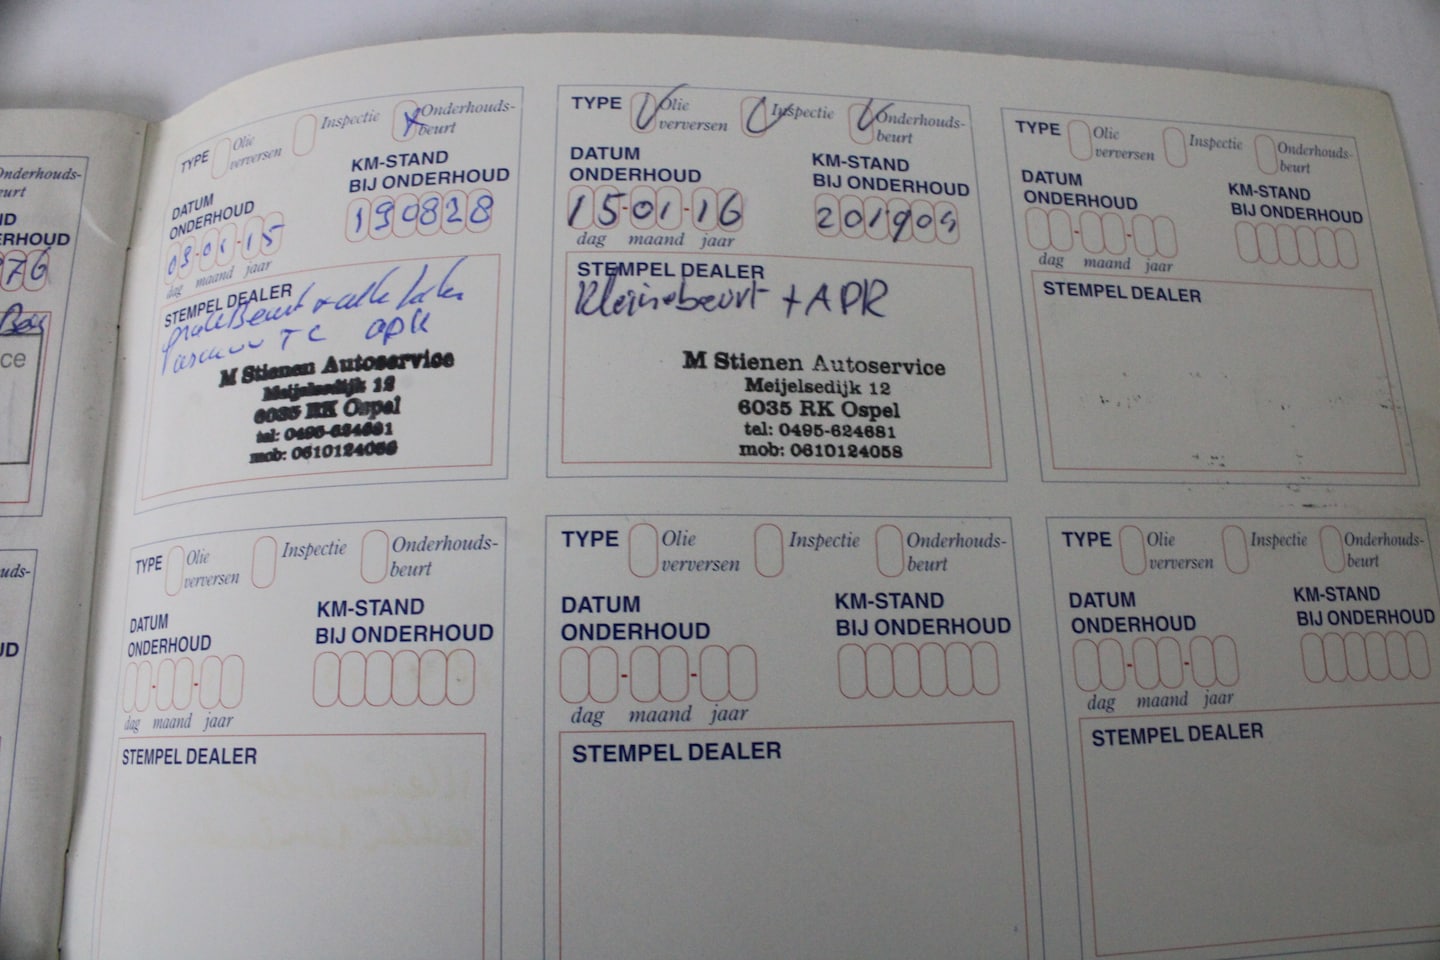 Onderhouds-
eurt
ERHOUD
76
ce
uds-
TYPE Olie verversen Inspectie Onderhouds-
beurt
DATUM
ONDERHOUD
KM-STAND
BIJ ONDERHOUD
190828
dag maand jaar
STEMPEL DEALER
apk
M Stienen Autoservice
Meijelsedijk 12
6035 RK Ospel
tel: 0495-624681
mob: 0610124058
TYPE Olie verversen Inspectie Onderhouds-
beurt
DATUM
ONDERHOUD
KM-STAND
BIJ ONDERHOUD
15-01-16
201904
dag maand jaar
STEMPEL DEALER
Kleinebeurt + APK
M Stienen Autoservice
Meijelsedijk 12
6035 RK Ospel
tel: 0495-624681
mob: 0610124058
TYPE Olie verversen Inspectie Onderhouds-
beurt
DATUM
ONDERHOUD
KM-STAND
BIJ ONDERHOUD
dag maand jaar
STEMPEL DEALER
TYPE Olie verversen Inspectie Onderhouds-
beurt
DATUM
ONDERHOUD
KM-STAND
BIJ ONDERHOUD
dag maand jaar
STEMPEL DEALER
TYPE Olie verversen Inspectie Onderhouds-
beurt
DATUM
ONDERHOUD
KM-STAND
BIJ ONDERHOUD
dag maand jaar
STEMPEL DEALER
TYPE Olie verversen Inspectie Onderhouds-
beurt
DATUM
ONDERHOUD
KM-STAND
BIJ ONDERHOUD
dag maand jaar
STEMPEL DEALER